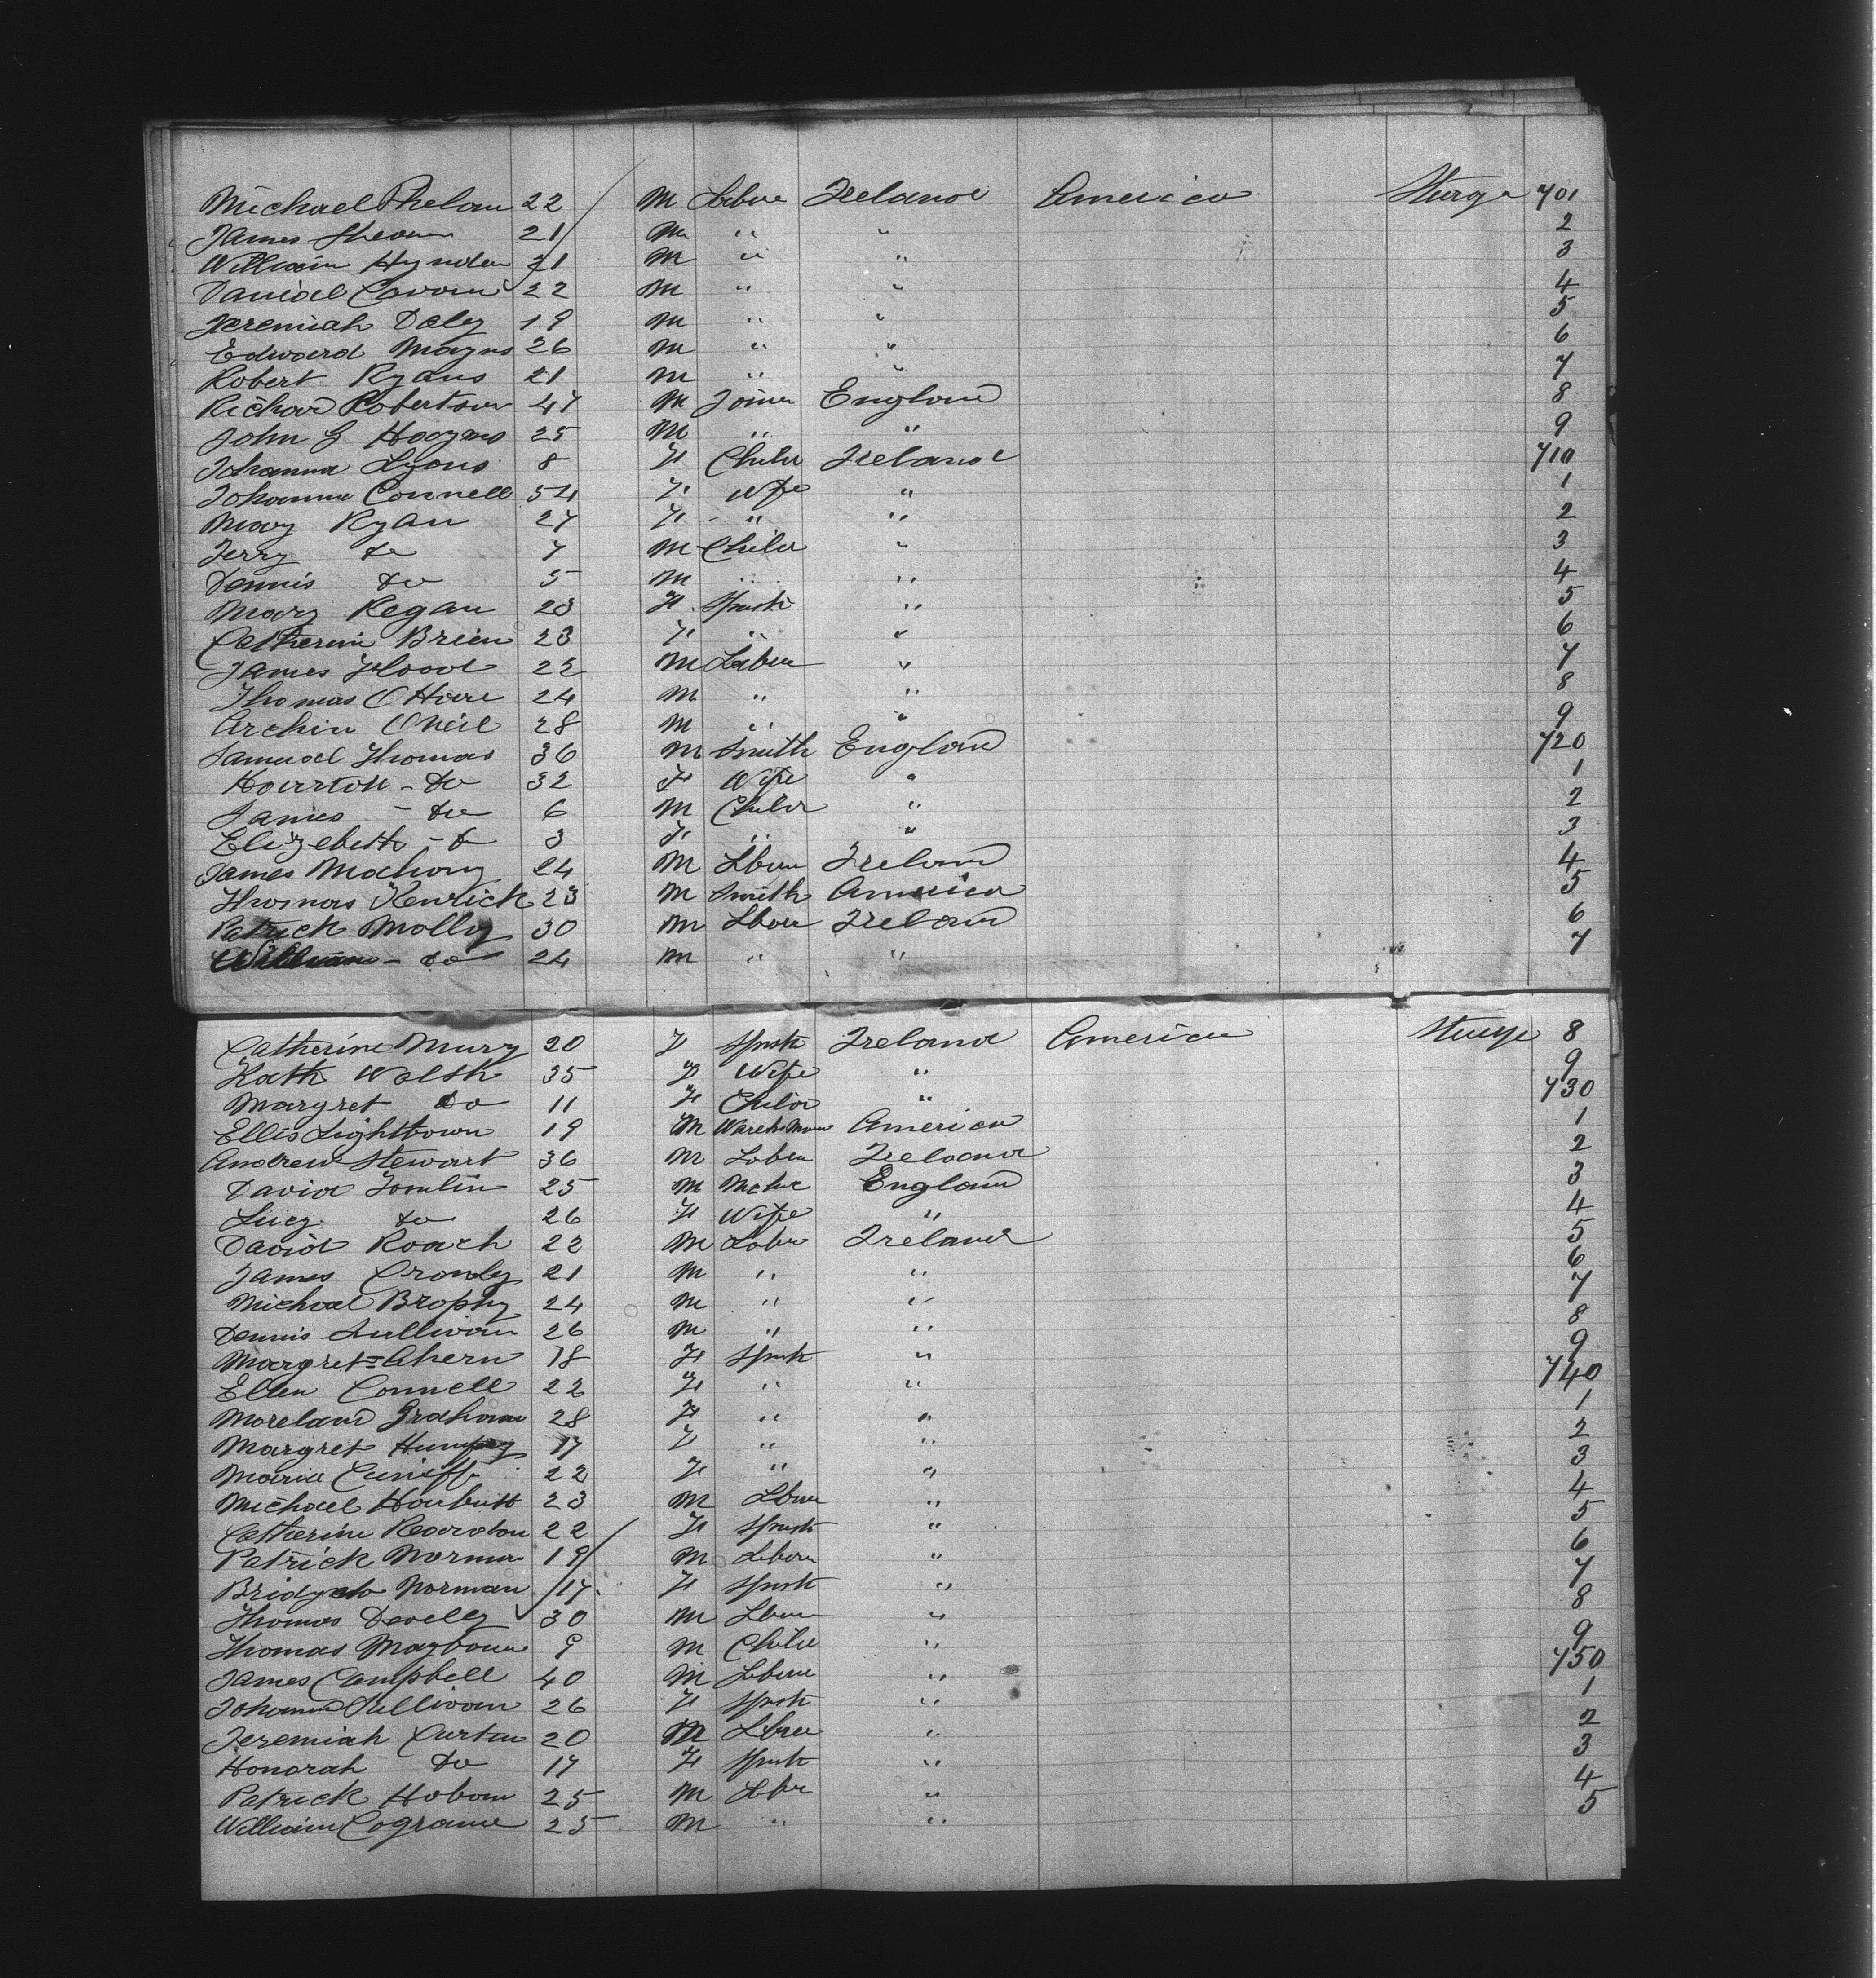 Michael Phelan 22 M Labur Ireland America Sturge 701
James Sheam 21 M " " 2
William Hynden 21 M " " 3
Daniael Cavan 22 M " " 4
Jeremiah Daly 19 M " " 5
Edward Magns 26 M " " 6
Robert Ryans 21 M " " 7
Richard Robertson 47 M Joiner England 8
John G Hoogans 25 M " " 9
Johanna Lyons 8 F Child Ireland 710
Johanna Connell 54 F Wife " 1
Mary Ryan 27 F " " 2
Jerry do 7 M Child " 3
Dennis do 5 M " " 4
Mary Regan 23 F Spnstr " 5
Catherine Brien 23 F " " 6
James Flood 22 M Labur " 7
Thomas O Hare 24 M " " 8
Archin O Neil 28 M " " 9
Samuael Thomas 36 M Smith England 720
do 32 F Wife " 1
James - do 6 M Child " 2
Elizebeth - do 3 F " " 3
James Mahony 24 M Lbur Ireland 4
Thomas Kenrick 23 M Smith America 5
Patrick Molloy 30 M Lbour Ireland 6
William - do 24 M " " 7
Catherine Mury 20 F Spnstr Ireland America Sturge 8
Kath Walsh 35 F Wife " 9
Margret do 11 F Child " 730
Ellis Lightbown 19 M America 1
Andrew Stewart 36 M Labur Ireland 2
David Tomlin 25 M England 3
Lucy do 26 F Wife " 4
David Roach 22 M Labur Ireland 5
James Cronly 21 M " " 6
Michael Brophy 24 M " " 7
Dennis Sullivan 26 M " " 8
Margret Ahern 18 F Spnstr " 9
Ellen Connell 22 F " " 740
Moreland Graham 28 F " " 1
Margret Humfry 17 F " " 2
Maria Cuniff 22 F " " 3
Michael 23 M Lbur " 4
Catherine Reardon 22 F Spnstr " 5
Patrick Norman 19 M Labur " 6
Bridget Norman 17 F Spnstr " 7
Thomas Devely 30 M Lbur " 8
Thomas Maybour 9 M Child " 9
James Campbell 40 M Labur " 750
Johanna Sullivan 26 F Spnstr " 1
Jeremiah Curtin 20 M Lbur " 2
Honorah do 17 F Spnstr " 3
Patrick Hoban 25 M Labr " 4
William Cograve 25 M " " 5